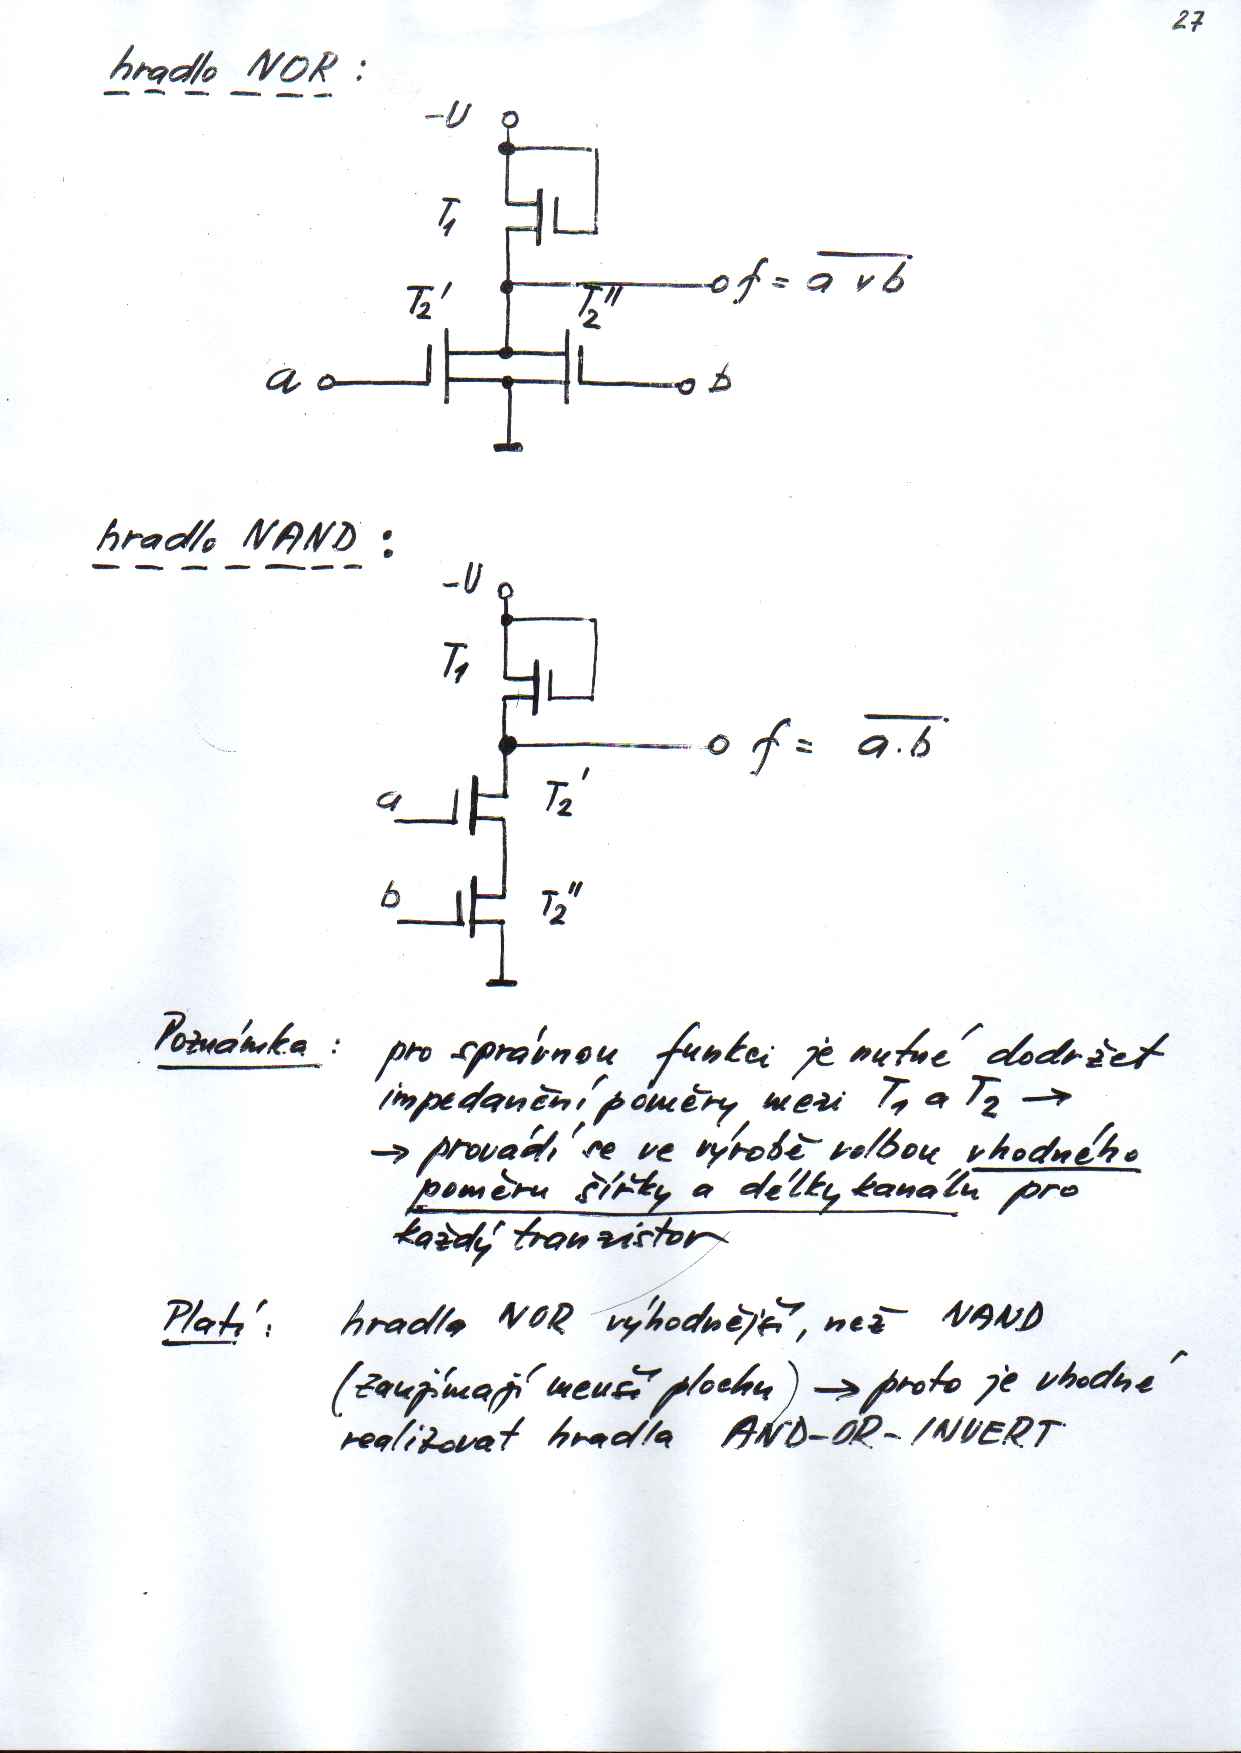 27
hradlo NOR :
-U
T1
T2' T2''
f = a v b
a b
hradlo NAND :
-U
T1
f = a . b
a T2'
b T2''
Poznámka : pro správnou funkci je nutné dodržet
impedanční poměry mezi T1 a T2 →
→ provádí se ve výrobě volbou vhodného
poměru šířky a délky kanálu pro
každý tranzistor
Platí : hradla NOR výhodnější, než NAND
(zaujímají menší plochu) → proto je vhodné
realizovat hradla AND-OR-INVERT